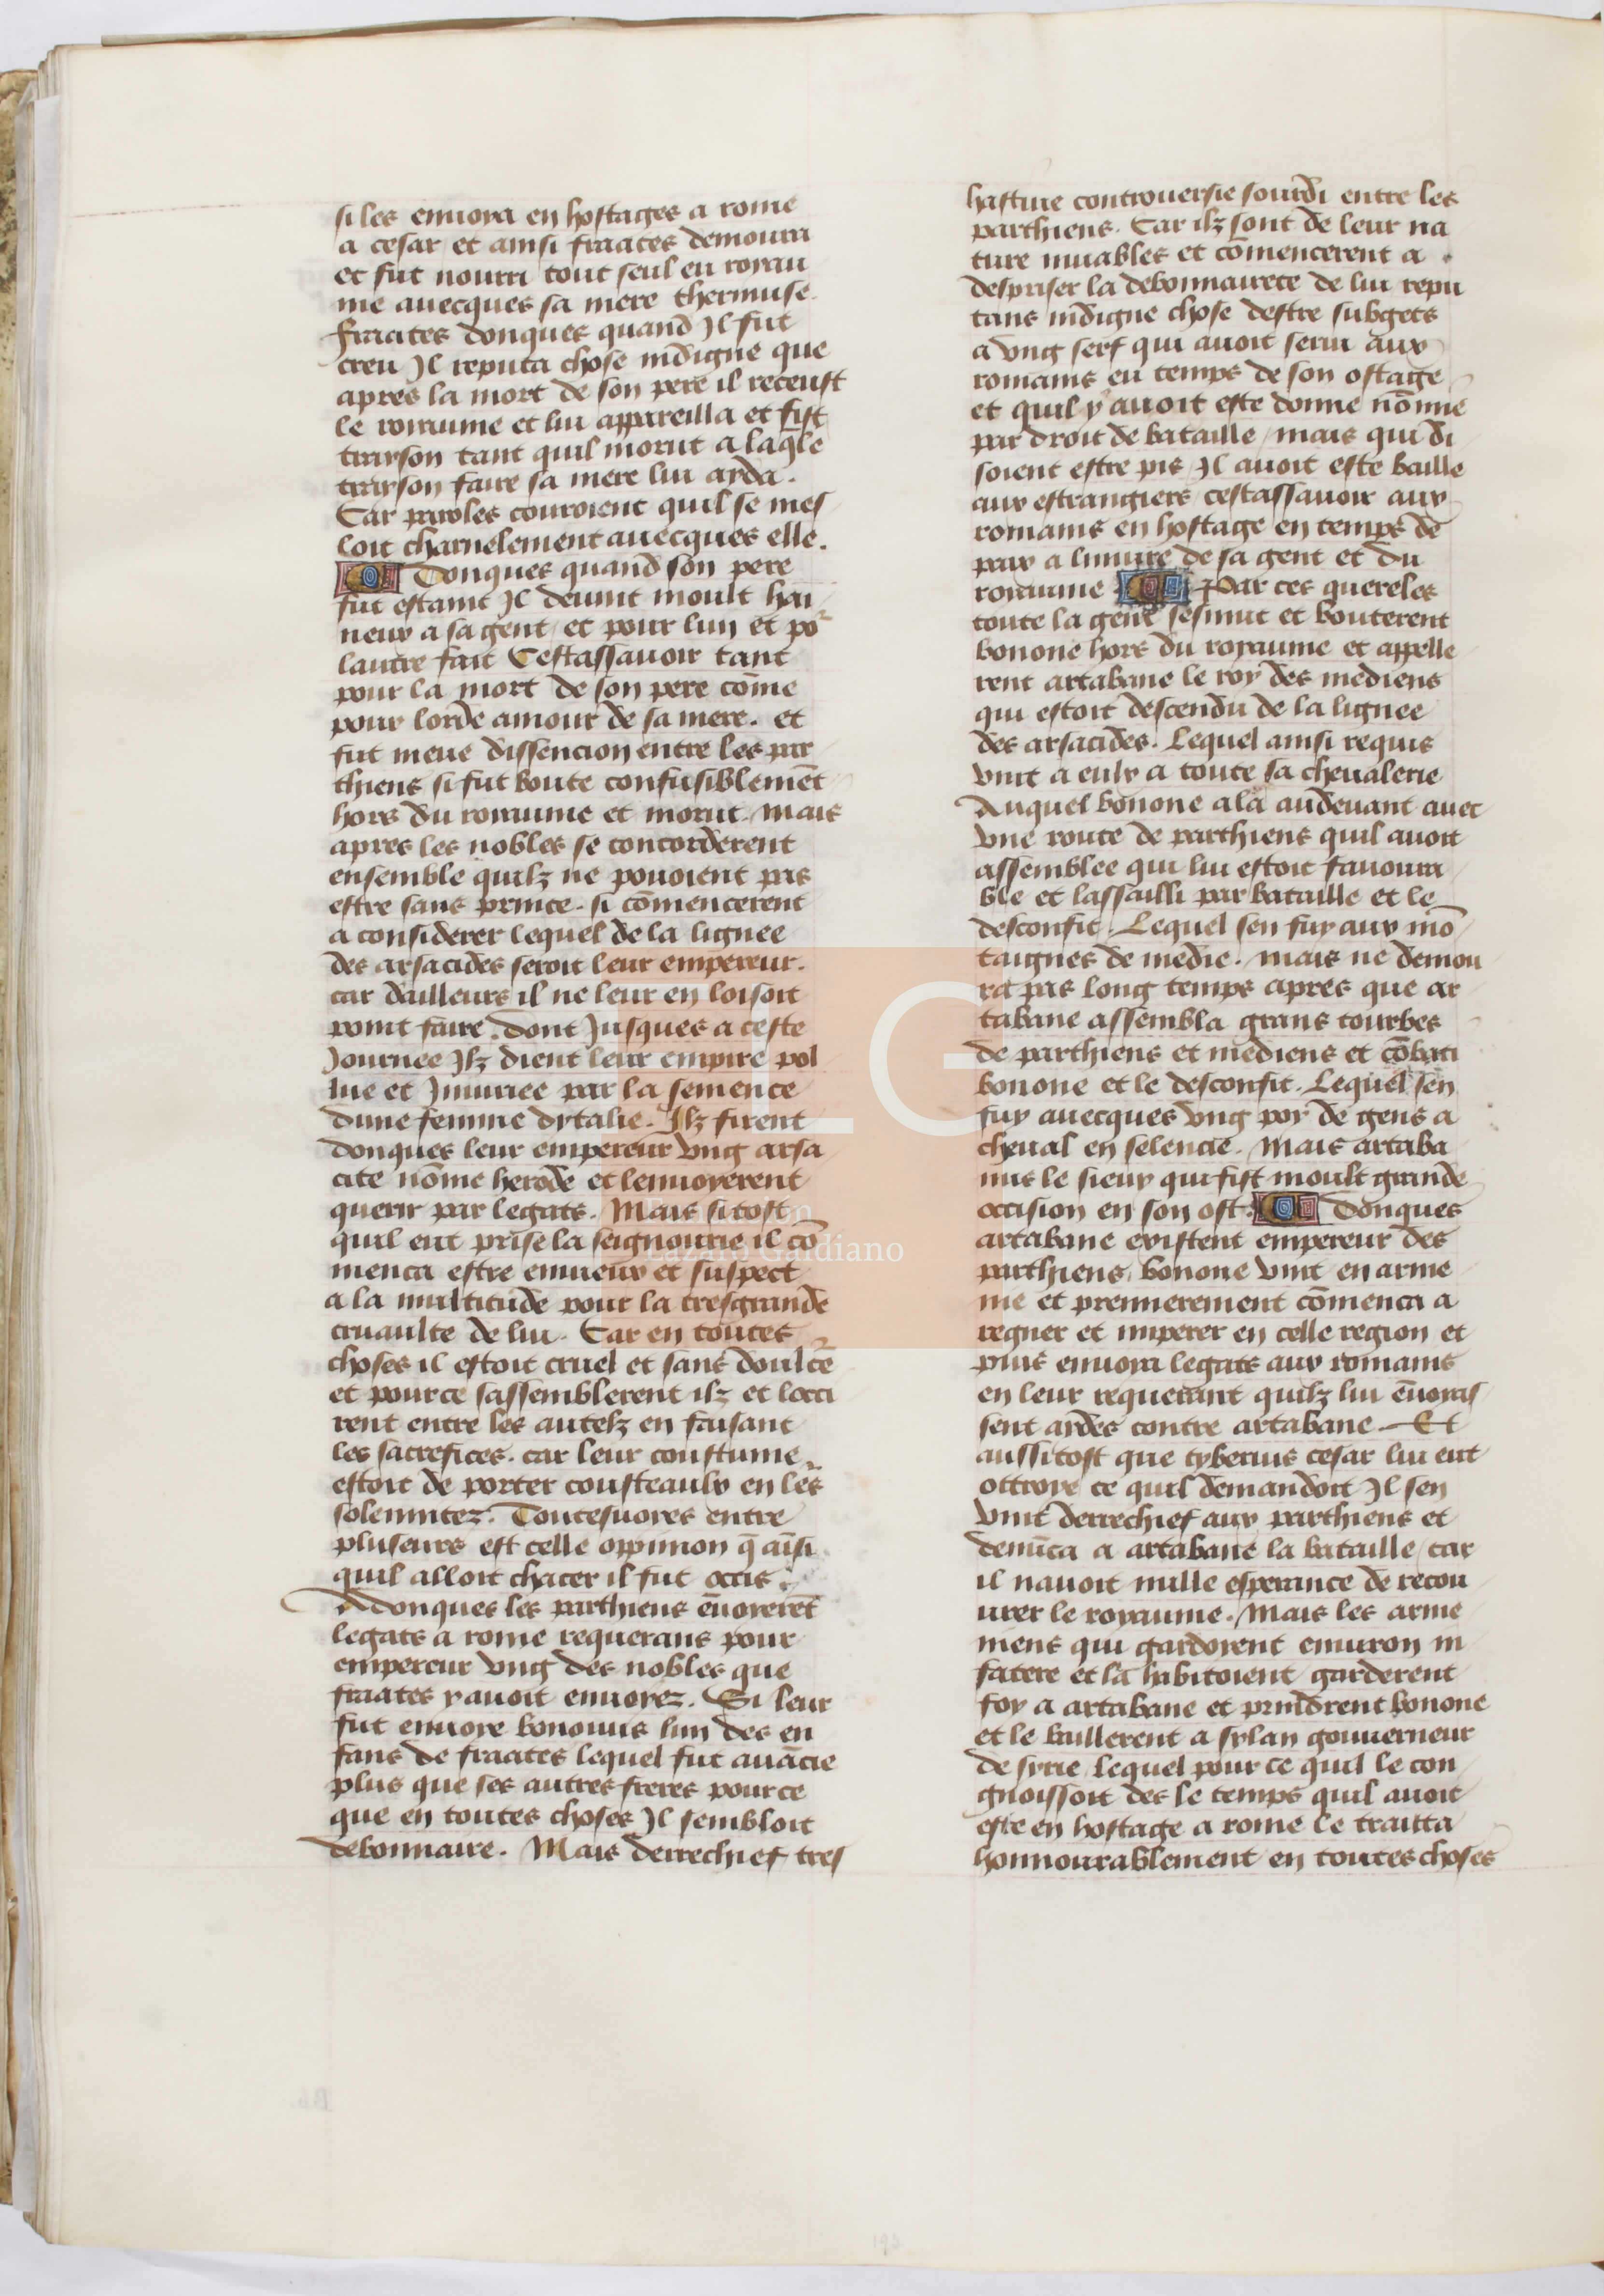 si les enuoya en hostages a rome
a cesar et ainsi fraates demoura
et fut nourri tout seul eu royau
me auecques sa mere thermuse.
fraates donques quand Il fut
creu Il reputa chose indigne que
apres la mort de son pere il receust
le royaume et lui appareilla et fist
trayson tant quil morut a laqle
trayson faire sa mere lui ayda.
Car paroles couroient quil se mes
loit charnelement auecques elle.
Donques quand son pere
fut estaint Il deuint moult hai
neux a sa gent et pour lun et po^r
lautre fait Cestassauoir tant
pour la mort de son pere cōme
pour lorde amour de sa mere. et
fut meue dissencion entre les par
thiens si fut boute confusiblemēt
hors du royaume et morut. Mais
apres les nobles se concorderent
ensemble quilz ne pouoient pas
estre sans prince. si cōmencerent
a considerer lequel de la lignee
des arsacides seroit leur empereur.
car dailleurs il ne leur en loisoit
point faire. dont Jusques a ceste
Journee Ilz dient leur empire pol
lue et Iniuriee par la semence
dune femme dytalie. Ilz firent
donques leur empereur vng arsa
cite nōme herode et lenuoyerent
querir par legats. Mais si tost
quil eut prise la seignourie il cō
menca estre enuieux et suspect
a la multitude pour la tresgrande
cruaulte de lui. Car en toutes
choses il estoit cruel et sans doulce^r
et pource sassemblerent ilz et locci
rent entre les autelz en faisant
les sacrefices. car leur coustume
estoit de porter cousteaulx en les
solennitez. Toutesuoyes entre
pluseurs est celle oppinion q̄ aīsi
quil alloit chacer il fut occis.
Adonques les parthiens ēuoyerēt
legats a rome requerans pour
empereur vng des nobles que
fraates y auoit enuoyez. Si leur
fut enuoye bonouus lun des en
fans de fraates lequel fut auācie
plus que ses autres freres pource
que en toutes choses Il sembloit
debonnaire. Mais derrechief tres
hastiue controuersie sourdi entre les
parthiens. Car ilz sont de leur na
ture muables et cōmencerent a
despriser la debonnairete de lui repu
tans indigne chose destre subgets
a vng serf qui auoit serui aux
romains eu temps de son ostage
et quil y auoit este donne nōme
par droit de bataille mais qui di
soient estre pis Il auoit este baille
aux estrangiers cestassauoir aux
romains en hostage en temps de
paix a liniure de sa gent et du
royaume Par ces quereles
toute la gent sesmut et bouterent
bonone hors du royaume et appelle
rent artabane le roy des mediens
qui estoit descendu de la lignee
des arsacides. Lequel ainsi requis
vint a eulx a toute sa cheualerie
Auquel bonone ala audeuant auec
vne route de parthiens quil auoit
assemblee qui lui estoit fauoura
ble et lassailli par bataille et le
desconfit. Lequel sen fuy aux mō
taignes de medie. Mais ne demou
ra pas long temps apres que ar
tabane assembla grans tourbes
de parthiens et mediens et cōbati
bonone et le desconfit. Lequel sen
fuy auecques vng poy de gens a
cheual en selencie. Mais artaba
nus le sieuy qui fist moult grande
occision en son ost. Donques
artabane existent empereur des
parthiens, bonone vint en arme
nie et premierement cōmenca a
regner et imperer en celle region et
puis enuoya legats aux romains
en leur requerant quilz lui ēuoyas
sent aydes contre artabane. Et
aussi tost que tyberius cesar lui eut
ottroye ce quil demandoit Il sen
vint derrechief aux parthiens et
denūca a artabane la bataille car
il nauoit nulle esperance de recou
urer le royaume. Mais les arme
niens qui gardoient enuiron ni
fatere et la habitoient garderent
foy a artabane et prindrent bonone
et le baillerent a sylan gouuerneur
de syrie lequel pour ce quil le con
gnoissoit des le temps quil auoit
este en hostage a rome le traitta
honnourablement en toutes choses
LG
Lázaro Galdiano